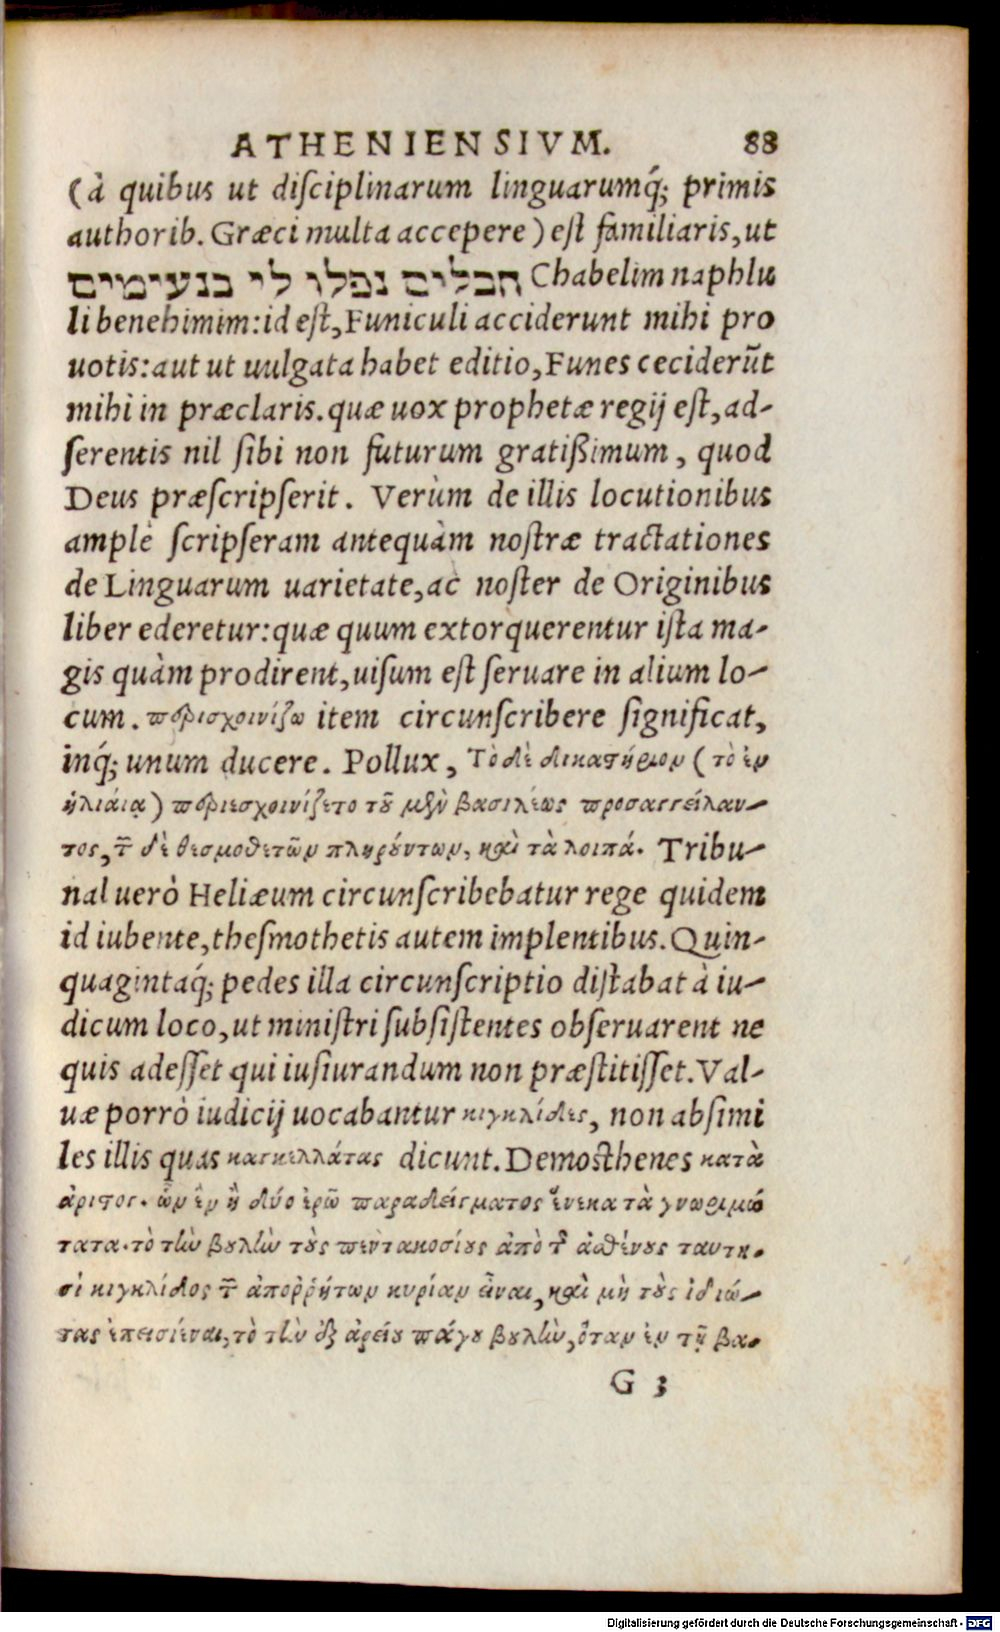 ATHENIENSIVM. 88
(à quibus ut diſciplinarum linguarumq́; primis
authorib. Græci multa accepere) eſt familiaris, ut
חבלים נפלו לי בנעימים Chabelim naphlu
li benehimim: id eſt, Funiculi acciderunt mihi pro
uotis: aut ut uulgata habet editio, Funes ceciderūt
mihi in præclaris. quæ uox prophetæ regij eſt, ad-
ſerentis nil ſibi non futurum gratißimum, quod
Deus præſcripſerit. Verùm de illis locutionibus
amplè ſcripſeram antequàm noſtræ tractationes
de Linguarum uarietate, ac noſter de Originibus
liber ederetur: quæ quum extorquerentur iſta ma-
gis quàm prodirent, uiſum eſt ſeruare in alium lo-
cum. περισχοινίζω item circunſcribere ſignificat,
inq́; unum ducere. Pollux, Τὸ δὲ δικαστήριον (τὸ ἐν
ἡλιάιᾳ) περιεσχοινίζετο τοῦ μὲν βασιλέως προσαγγείλαν-
τος, τῶν δὲ θεσμοθετῶν πληρούντων, καὶ τὰ λοιπά. Tribu-
nal uerò Heliæum circunſcribebatur rege quidem
id iubente, theſmothetis autem implentibus. Quin-
quagintaq́; pedes illa circunſcriptio diſtabat à iu-
dicum loco, ut miniſtri ſubſiſtentes obſeruarent ne
quis adeſſet qui iuſiurandum non præſtitiſſet. Val-
uæ porrò iudicij uocabantur κιγκλίδες, non abſimi
les illis quas καγκελλάτας dicunt. Demoſthenes κατὰ
ἀριστος. ὧν ἓν ἢ δύο ἐρῶ παραδείγματος ἕνεκα τὰ γνωριμώ
τατα. τὸ τὴν βουλὴν τοὺς πεντακοσίους ἀπὸ τῆς ἀσθένους ταυτη-
σὶ κιγκλίδος τῶν ἀποῤῥήτων κυρίαν εἶναι, καὶ μὴ τοὺς ἰδιώ-
τας ἐπεισιέναι, τὸ τὴν ἐξ ἀρείου πάγου βουλὴν, ὅταν ἐν τῇ βα-
G 3
Digitalisierung gefördert durch die Deutsche Forschungsgemeinschaft - DFG